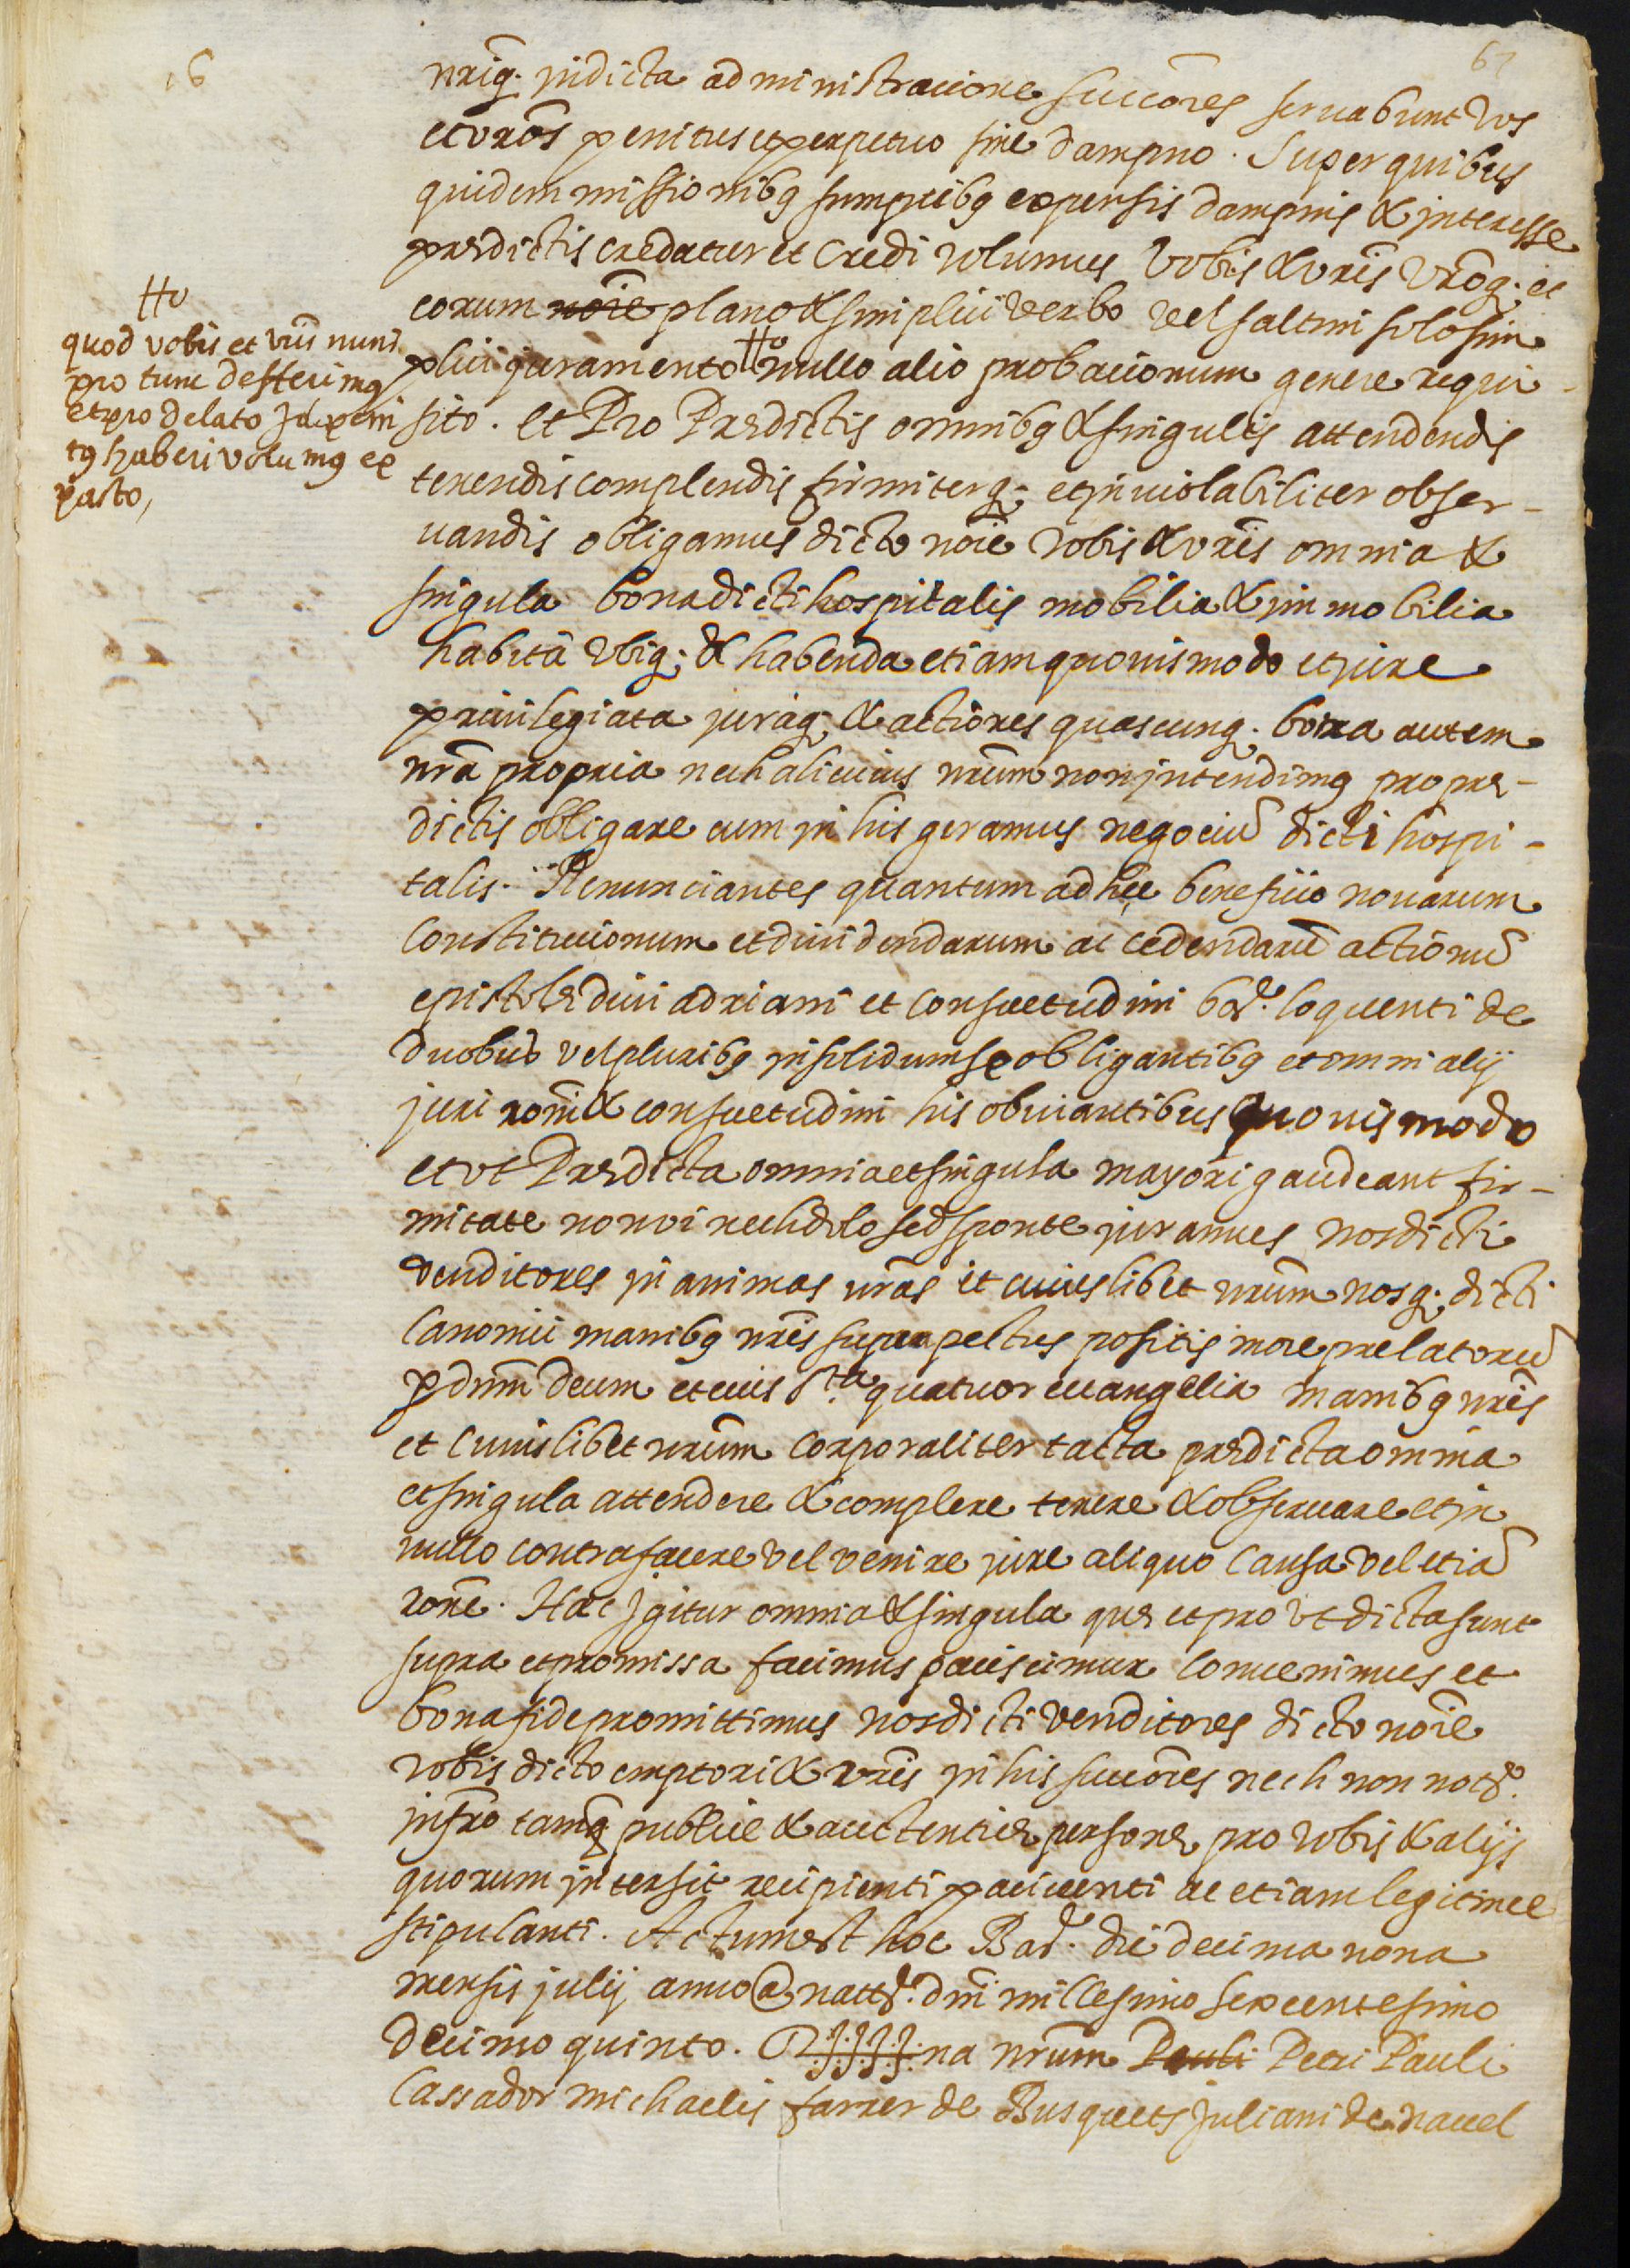 16
67
nriq. in dicta administracione succōres servabunt vos
et vrōs penitus et perpetuo sine dampno. Super quibus
quidem missionibq sumptibq expensis dampnis & interesse
prædictis credatur et credi volumus vobis & vrīs vrōq; et
eorum noīe plano & simplici verbo vel saltim solo sim
plici juramento # nullo alio probacionum genere requi-
sito. et Pro Prædictis omnibq & singulis attendendis
tenendis complendis firmiterq; et inviolabiliter obser-
vandis obligamus dicto noīe vobis & vrīs omnia &
singula bona dicti hospitalis mobilia & immobilia
habita vbiq; & habenda etiam quovismodo et jure
privilegiata juraq; & actiones quascunq. bona autem
nrā propria nech alicuius nrūm non intendimq pro præ-
dictis obligare cum in his geramus negociū dicti hospi-
talis. Renunciantes quantum ad hec beneficio novarum
Constitucionum et dividendarum ac cedendarū actionū
epistolæ divi adriani et consuetudini bar. loquenti de
duobus vel pluribq insolidum se obligantibq et omni alij
juri roni & consuetudini his obviantibus quovis modo
et vt Prædicta omnia et singula mayori gaudeant fir-
mitate non vi nech dolo sed sponte juramus nos dicti
venditores in animas nrās et cuiuslibet nrūm nosq; dicti
Canonici manibq nrīs supra pectus positis more prelatorū
p dnūm deum et eius sta. quatuor euangelia manibq nrīs
et cuiuslibet nrūm corporaliter tacta prædicta omnia
et singula attendere & complere tenere & observare et in
nullo contrafacere vel venire jure aliquo causa vel etiā
ronē. Hæc Jgitur omnia & singula quæ et pro vt dicta sunt
supra et promissa facimus paciscimur convenimus et
bona fide promittimus nos dicti venditores dicto noīe
vobis dicto emptori & vrīs in his succōres nech non notº.
infrō tamq publice & auctenticæ personæ pro vobis & alijs
quorum intersit recipienti paciscenti ac etiam legitime
stipulanti. Actum est hoc Bar. die decima nona
mensis julij anno @ natte. dnī millesimo sexcentesimo
decimo quinto. na nrūm Pauli Petri Pauli
Cassador michaelis farrer de Busquets Juliani de navel
#
quod vobis et vrīs nunc
pro tunc defferimq
et pro delato Jde peni
tq haberi volumq ex
pacto,